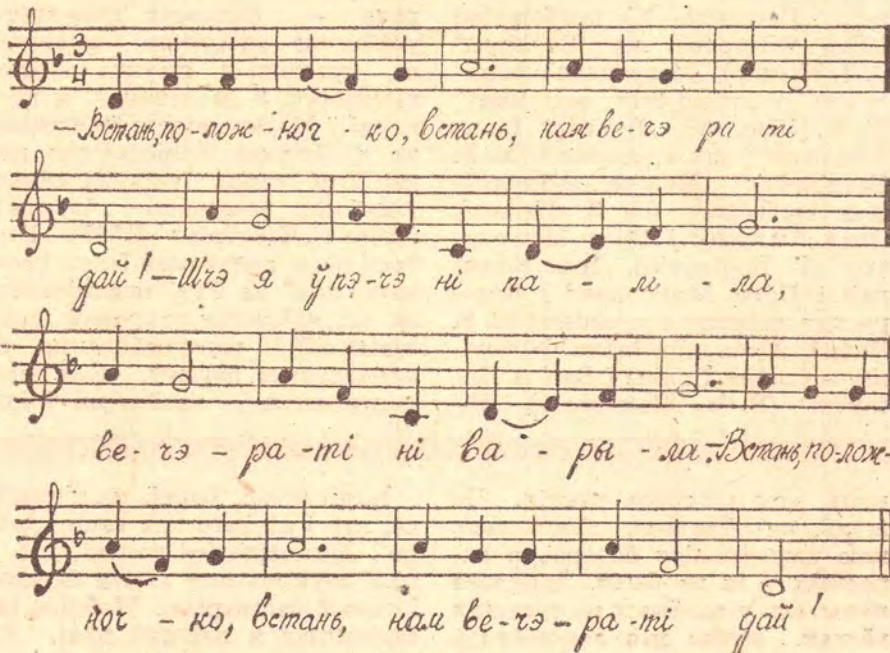 3
4
— Встань, по-лож-ноч-ко, встань, нам ве-чэ ра-ті
дай! — Шчэ я ў пэ-чэ ні па-лі-ла,
ве-чэ-ра-ті ні ва-ры-ла. — Встань, по-лож-
ноч-ко, встань, нам ве-чэ-ра-ті дай!